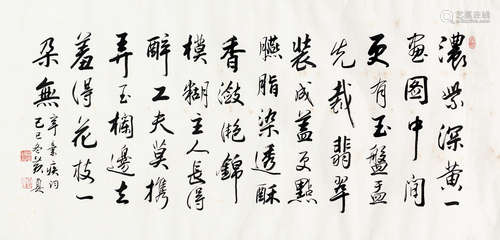 濃紫深黄一
畫圖中間
更有玉盤盂
先裁翡翠
裝成蓋更點
臙脂染透酥
香潋灧錦
模糊主人長得
醉工夫莫攜
弄玉欄邊去
羞得花枝一
朵無
辛棄疾詞
己巳冬